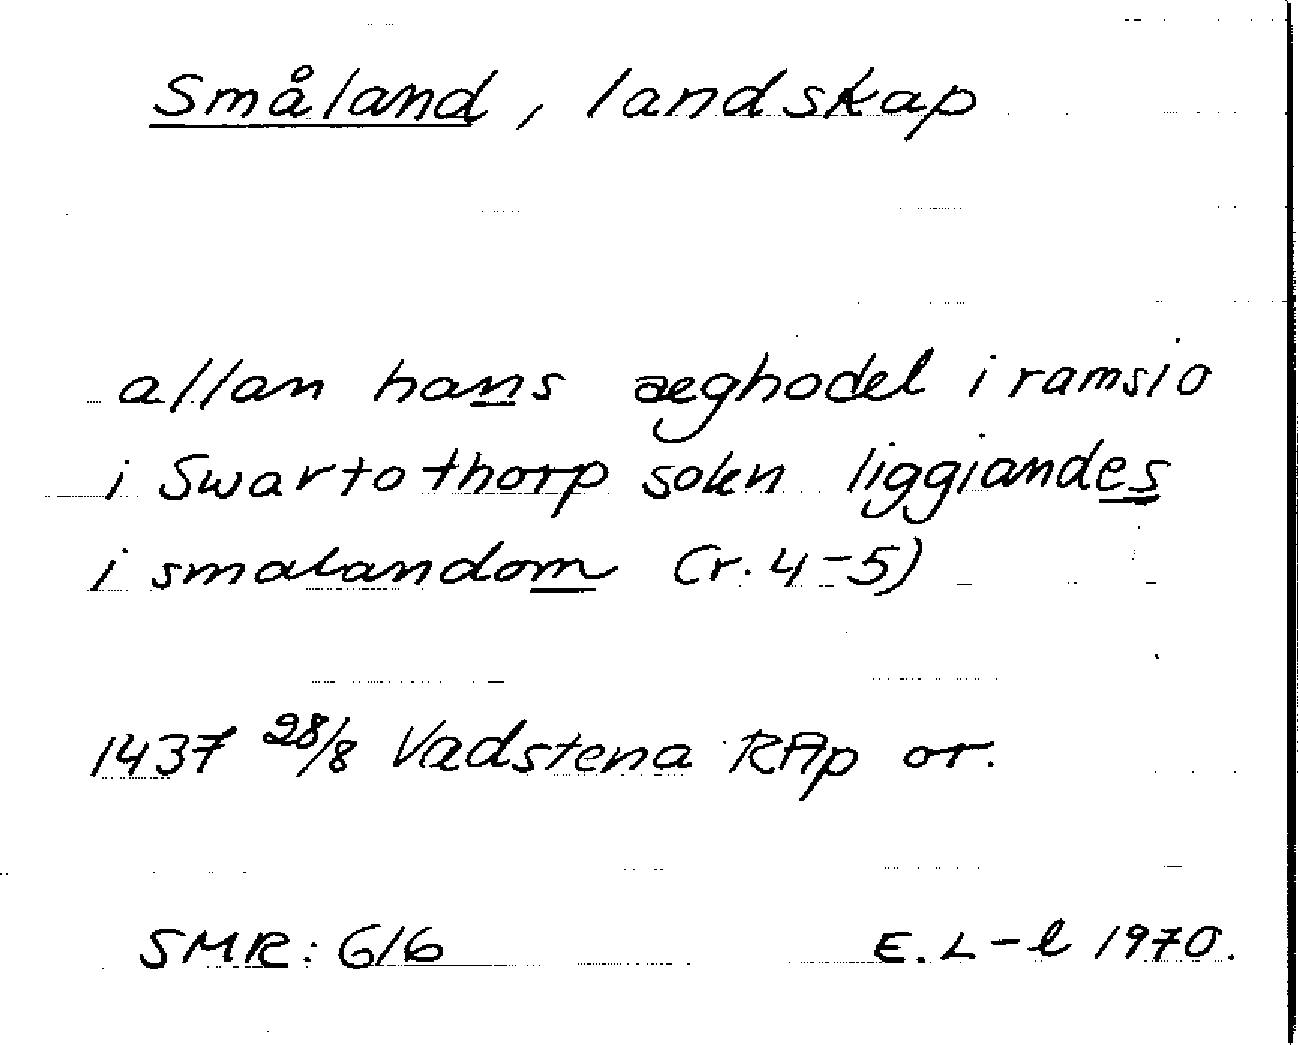 Småland, landskap
allan hans æghodel i ramsio
i Swartothorp sokn liggiandes
i smalandom (r. 4-5)
1437 28/8 Vadstena RAp or.
SMR: 616 E. L-l 1970.